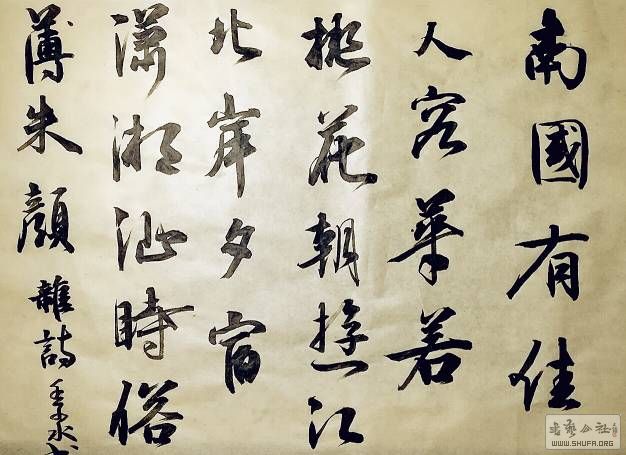 南國有佳
人容華若
桃花朝遊江
北岸夕宿
瀟湘沚時俗
薄朱顏 雜詩
书艺公社
WWW.SHUFA.ORG